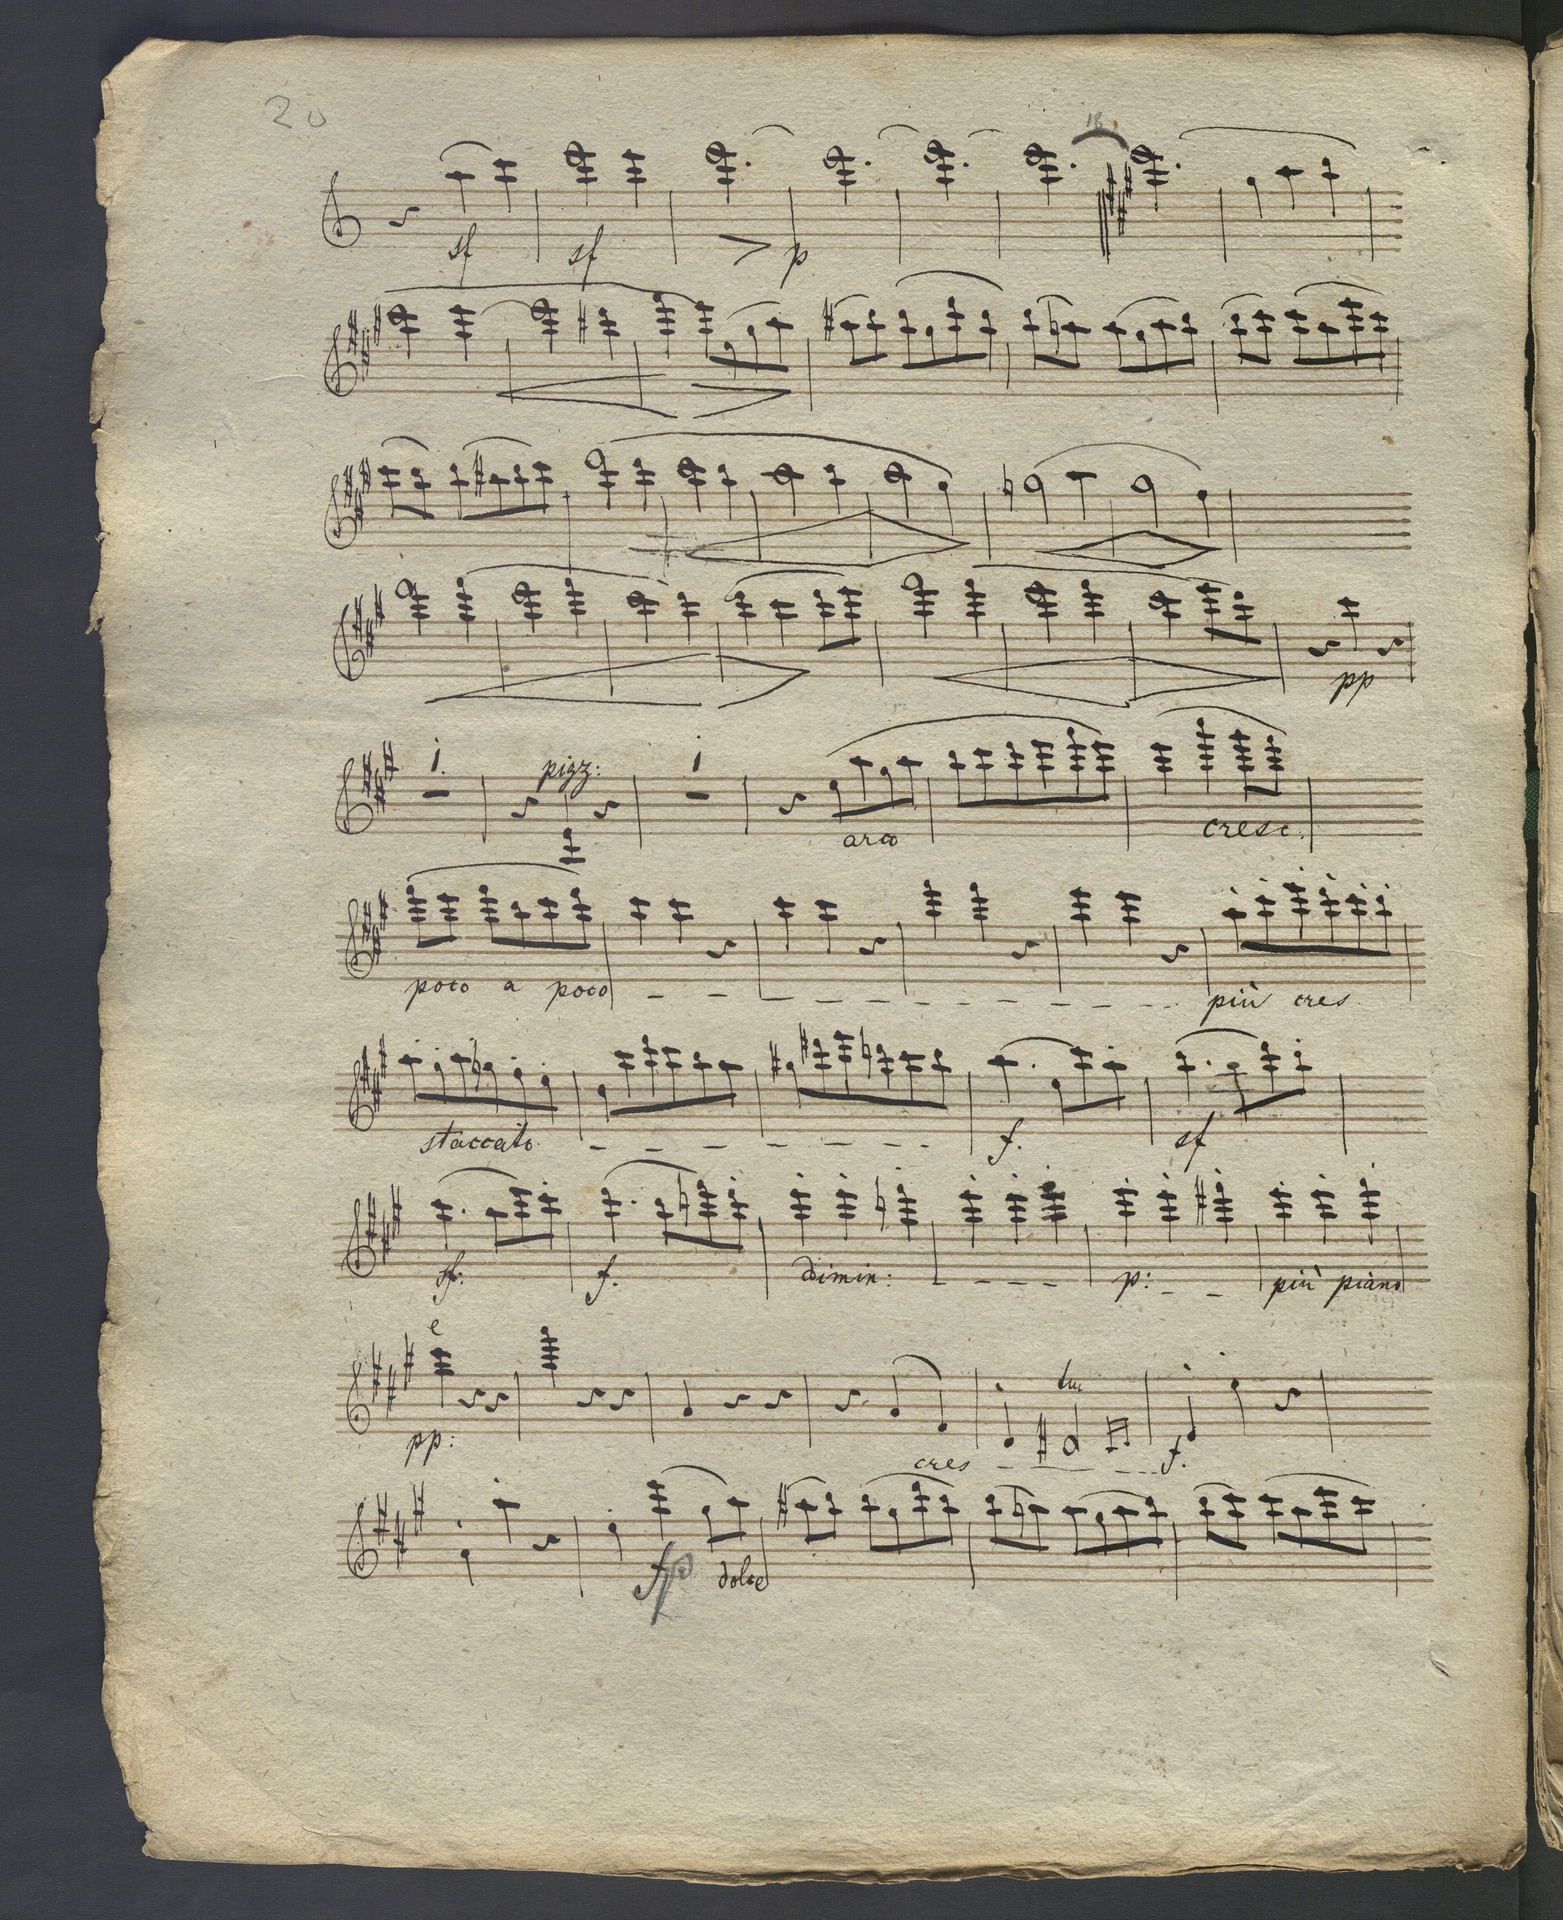 20
18
sf sf p
pp
1. pizz: 1
arco cresc.
poco a poco più cres
staccato f. sf
sf: f. dimin: p: più piano
e
pp: tm cres f.
fp dolce